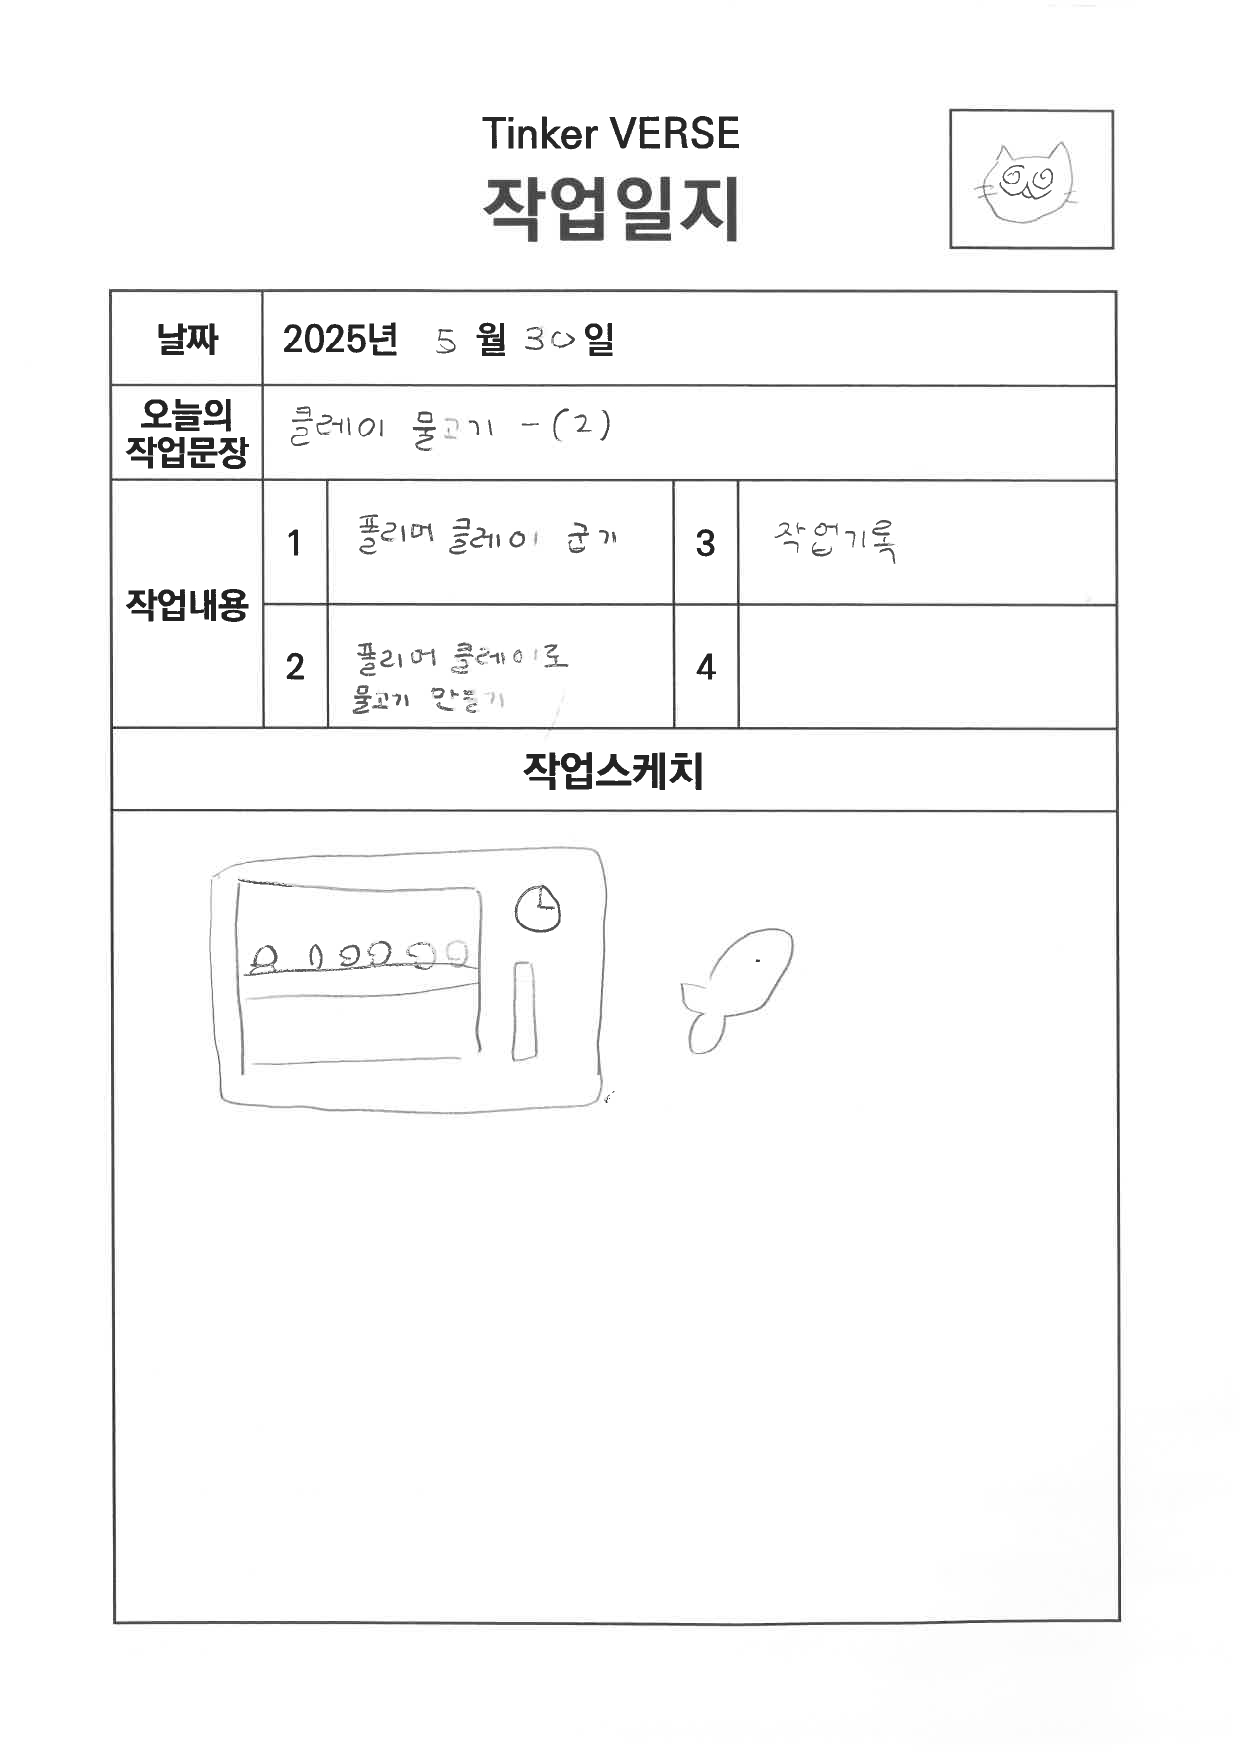 Tinker VERSE
작업일지
날짜
2025년 5월 30일
오늘의
작업문장
클레이 물고기 - (2)
작업내용
1
폴리머 클레이 굽기
3
작업기록
2
폴리머 클레이로
물고기 만들기
4
작업스케치